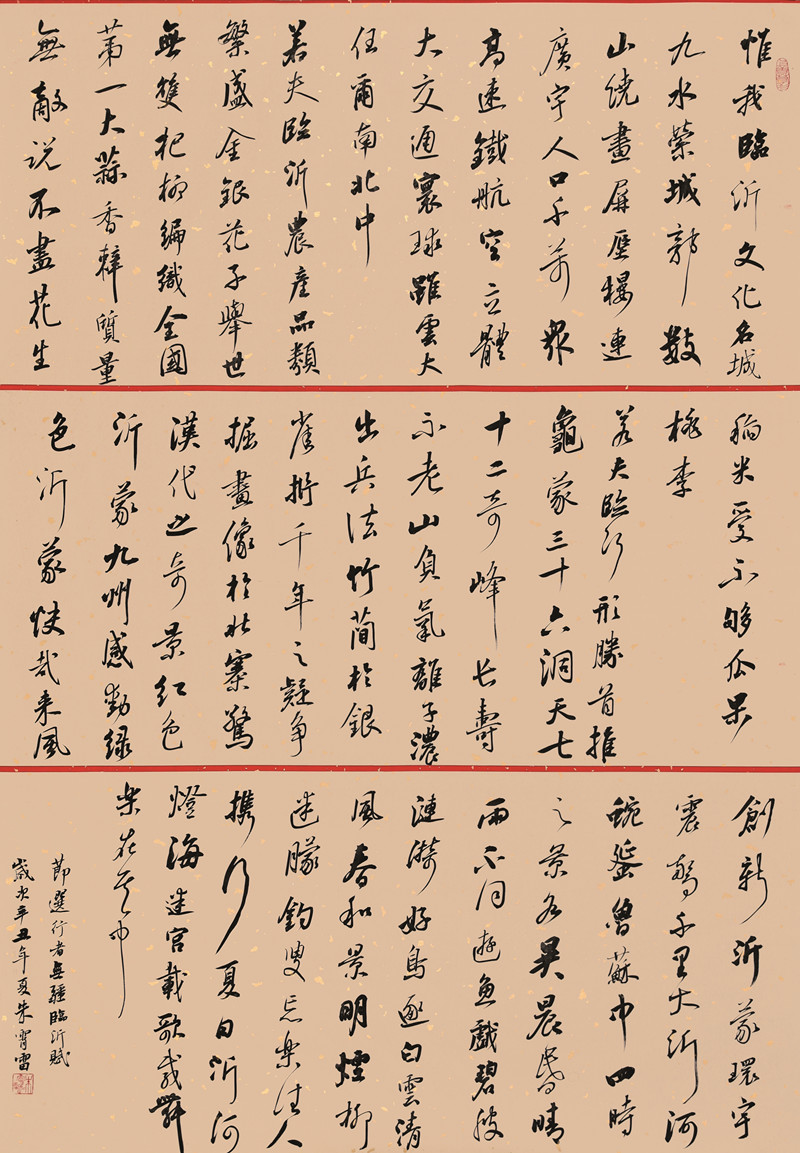 惟我臨沂文化名城
九水縈城郭數
山繞畫屏廈樓連
廣宇人口千萬眾
高速鐵航空立體
大交通寰球雖雲大
任爾南北中
若夫臨沂農產品類
繁盛金銀花子舉世
無雙杞柳編織全國
第一大蒜香辣質量
無敵说不盡花生
稻米愛不够瓜果
桃李
若夫臨沂形勝首推
龜蒙三十六洞天七
十二奇峰长壽
不老山負氧離子濃
出兵法竹简於銀
雀掀千年之疑争
掘畫像於北寨驚
漢代之奇景红色
沂蒙九州感動緑
色沂蒙快哉来風
創新沂蒙環宇
震驚千里大沂河
蜿蜒魯蘇中四時
之景各異晨昏晴
雨不同遊魚戲碧波
漣漪好鳥逐白雲清
風春和景明煙柳
迷朦釣叟忘樂佳人
携行夏日沂河
燈海迷宫載歌載舞
樂在其中
節選行者無疆臨沂賦
歲次辛丑年夏朱霄雷